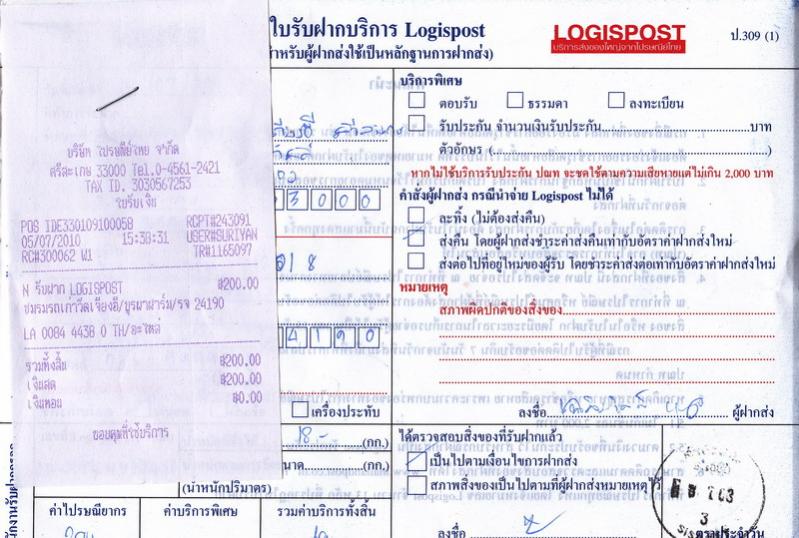 ใบรับฝากบริการ Logispost
สำหรับผู้ฝากส่งใช้เป็นหลักฐานการฝากส่ง)
LOGISPOST
บริการส่งของใหญ่จากไปรษณีย์ไทย
ป.309 (1)
บริษัท ไปรษณีย์ไทย จำกัด
ศรีสะเกษ 33000 Tel.0-4561-2421
TAX ID. 3030567253
ใบรับเงิน
POS IDE330109100058 RCPT#243091
05/07/2010 15:38:31 USER#SURIYAN
RC#300062 W1 TR#1165097
N รับฝาก LOGISPOST ฿200.00
ชมรมรถเก่าวีดเจียงฮี/บูรพาฟาร์ม/รจ 24190
LA 0084 4438 0 TH/อะไหล่
รวมทั้งสิ้น ฿200.00
เงินสด ฿200.00
เงินทอน ฿0.00
ขอบคุณที่ใช้บริการ
3000
018
4190
เครื่องประทับ
18
(กก.)
(กก.)
(น้ำหนักปริมาตร)
ค่าไปรษณียากร
ค่าบริการพิเศษ
รวมค่าบริการทั้งสิ้น
บริการพิเศษ
ตอบรับ ธรรมดา ลงทะเบียน
รับประกัน จำนวนเงินรับประกัน บาท
ตัวอักษร ( )
หากไม่ใช้บริการรับประกัน ปณท จะชดใช้ตามความเสียหายแต่ไม่เกิน 2,000 บาท
คำสั่งผู้ฝากส่ง กรณีนำจ่าย Logispost ไม่ได้
ละทิ้ง (ไม่ต้องส่งคืน)
ส่งคืน โดยผู้ฝากส่งชำระค่าส่งคืนเท่ากับอัตราค่าฝากส่งใหม่
ส่งต่อไปที่อยู่ใหม่ของผู้รับ โดยชำระค่าส่งต่อเท่ากับอัตราค่าฝากส่งใหม่
หมายเหตุ
สภาพผิดปกติของสิ่งของ
ลงชื่อ ผู้ฝากส่ง
ได้ตรวจสอบสิ่งของที่รับฝากแล้ว
เป็นไปตามเงื่อนไขการฝากส่ง
สภาพสิ่งของเป็นไปตามที่ผู้ฝากส่งหมายเหตุไว้
ลงชื่อ
ตราประจำวัน